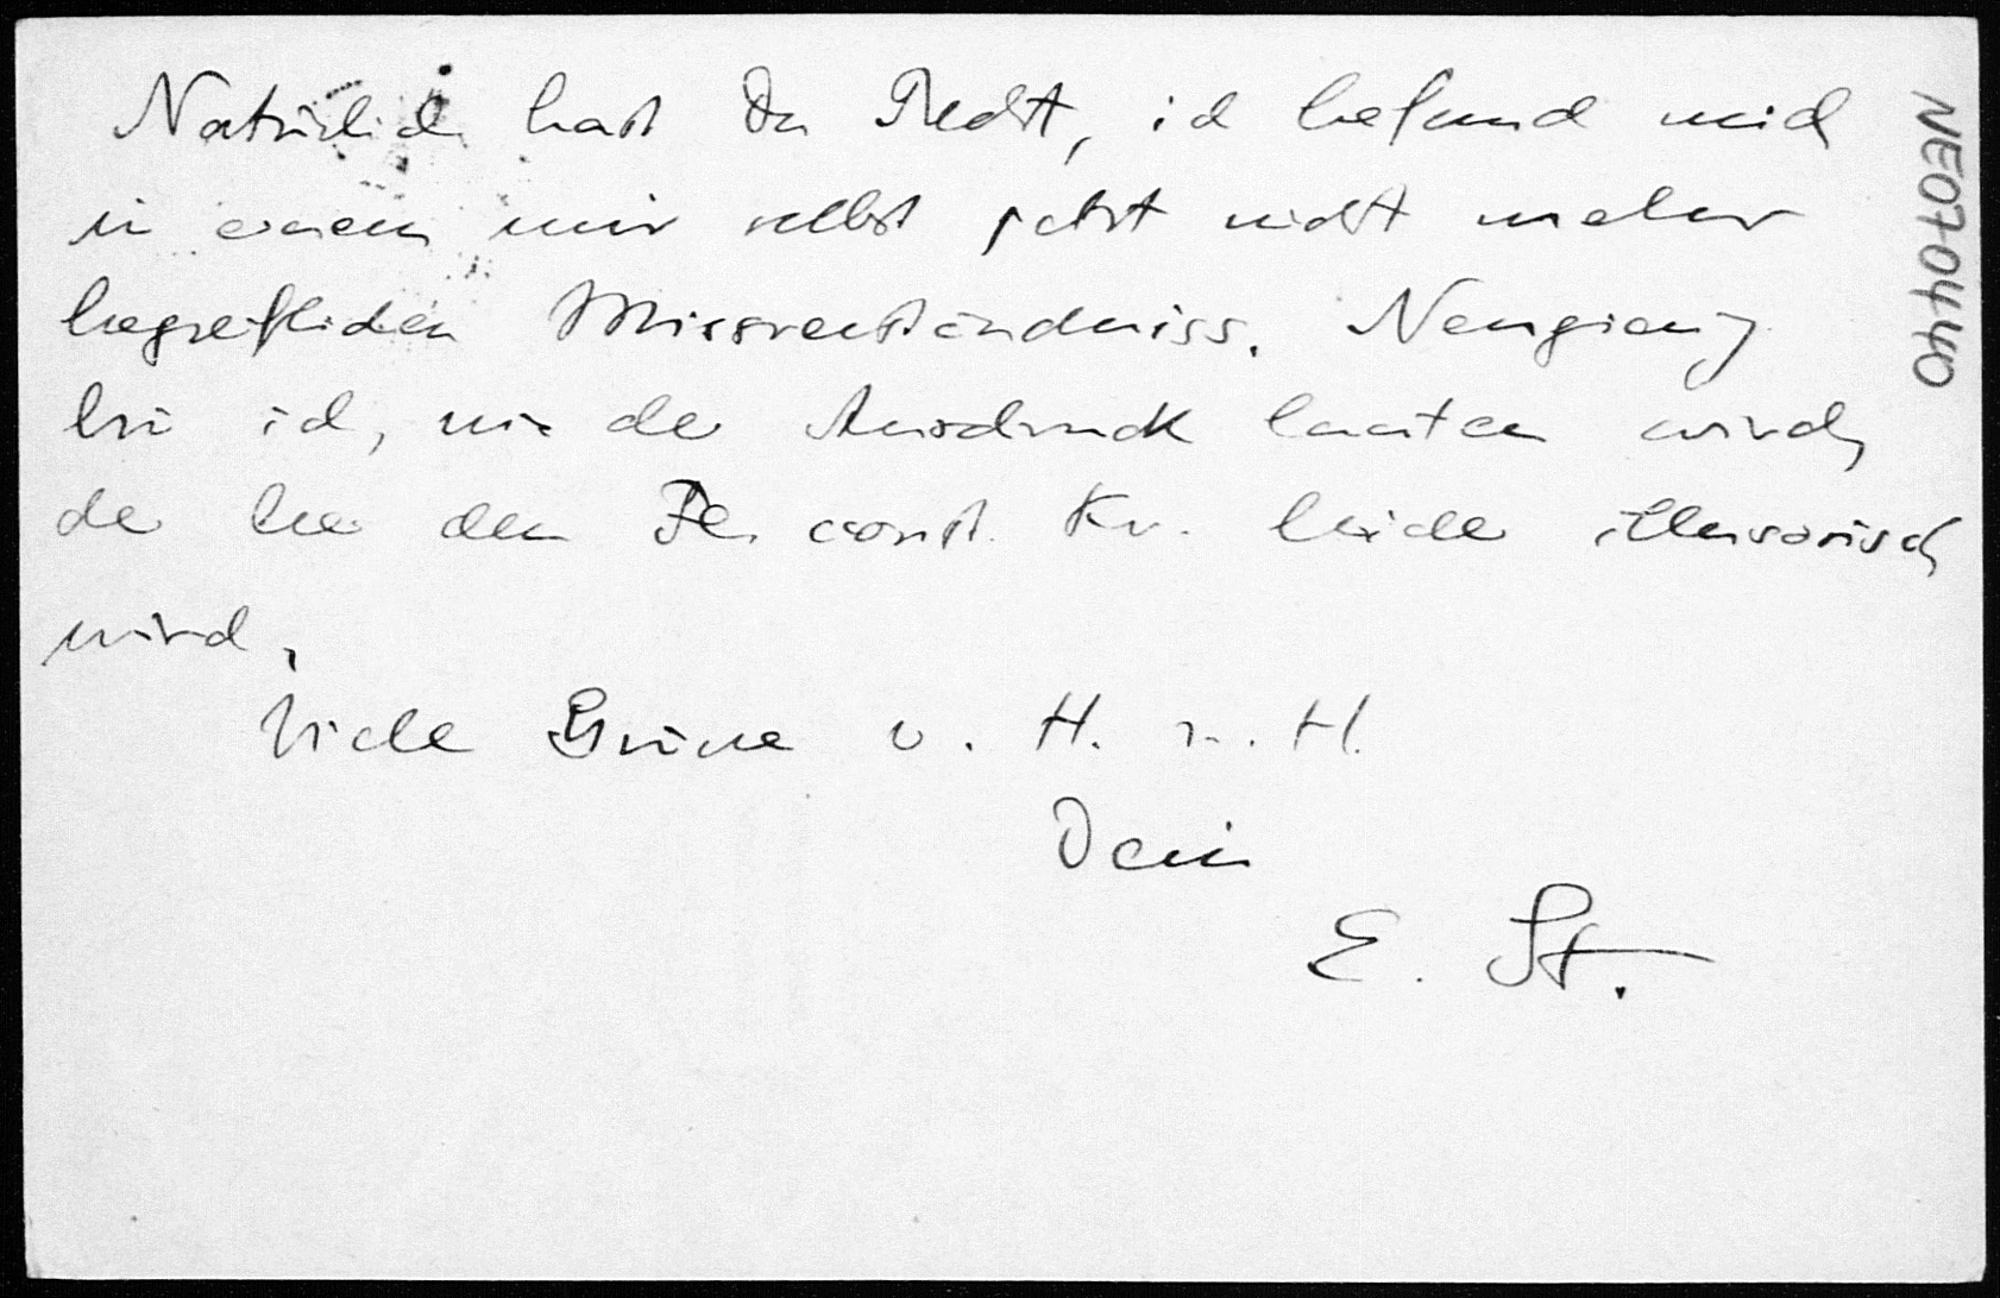 Natürlich hast Du Recht, ich befand mich
in einem mir selbst jetzt nicht mehr
begreiflichen Missverständniss. Neugierig
bin ich, wie der Ausdruck lauten wird,
der bei den Fl. const. Kr. leider illusorisch
wird.
Viele Grüsse v. H. z. H.
Dein
E. St.
NE070440